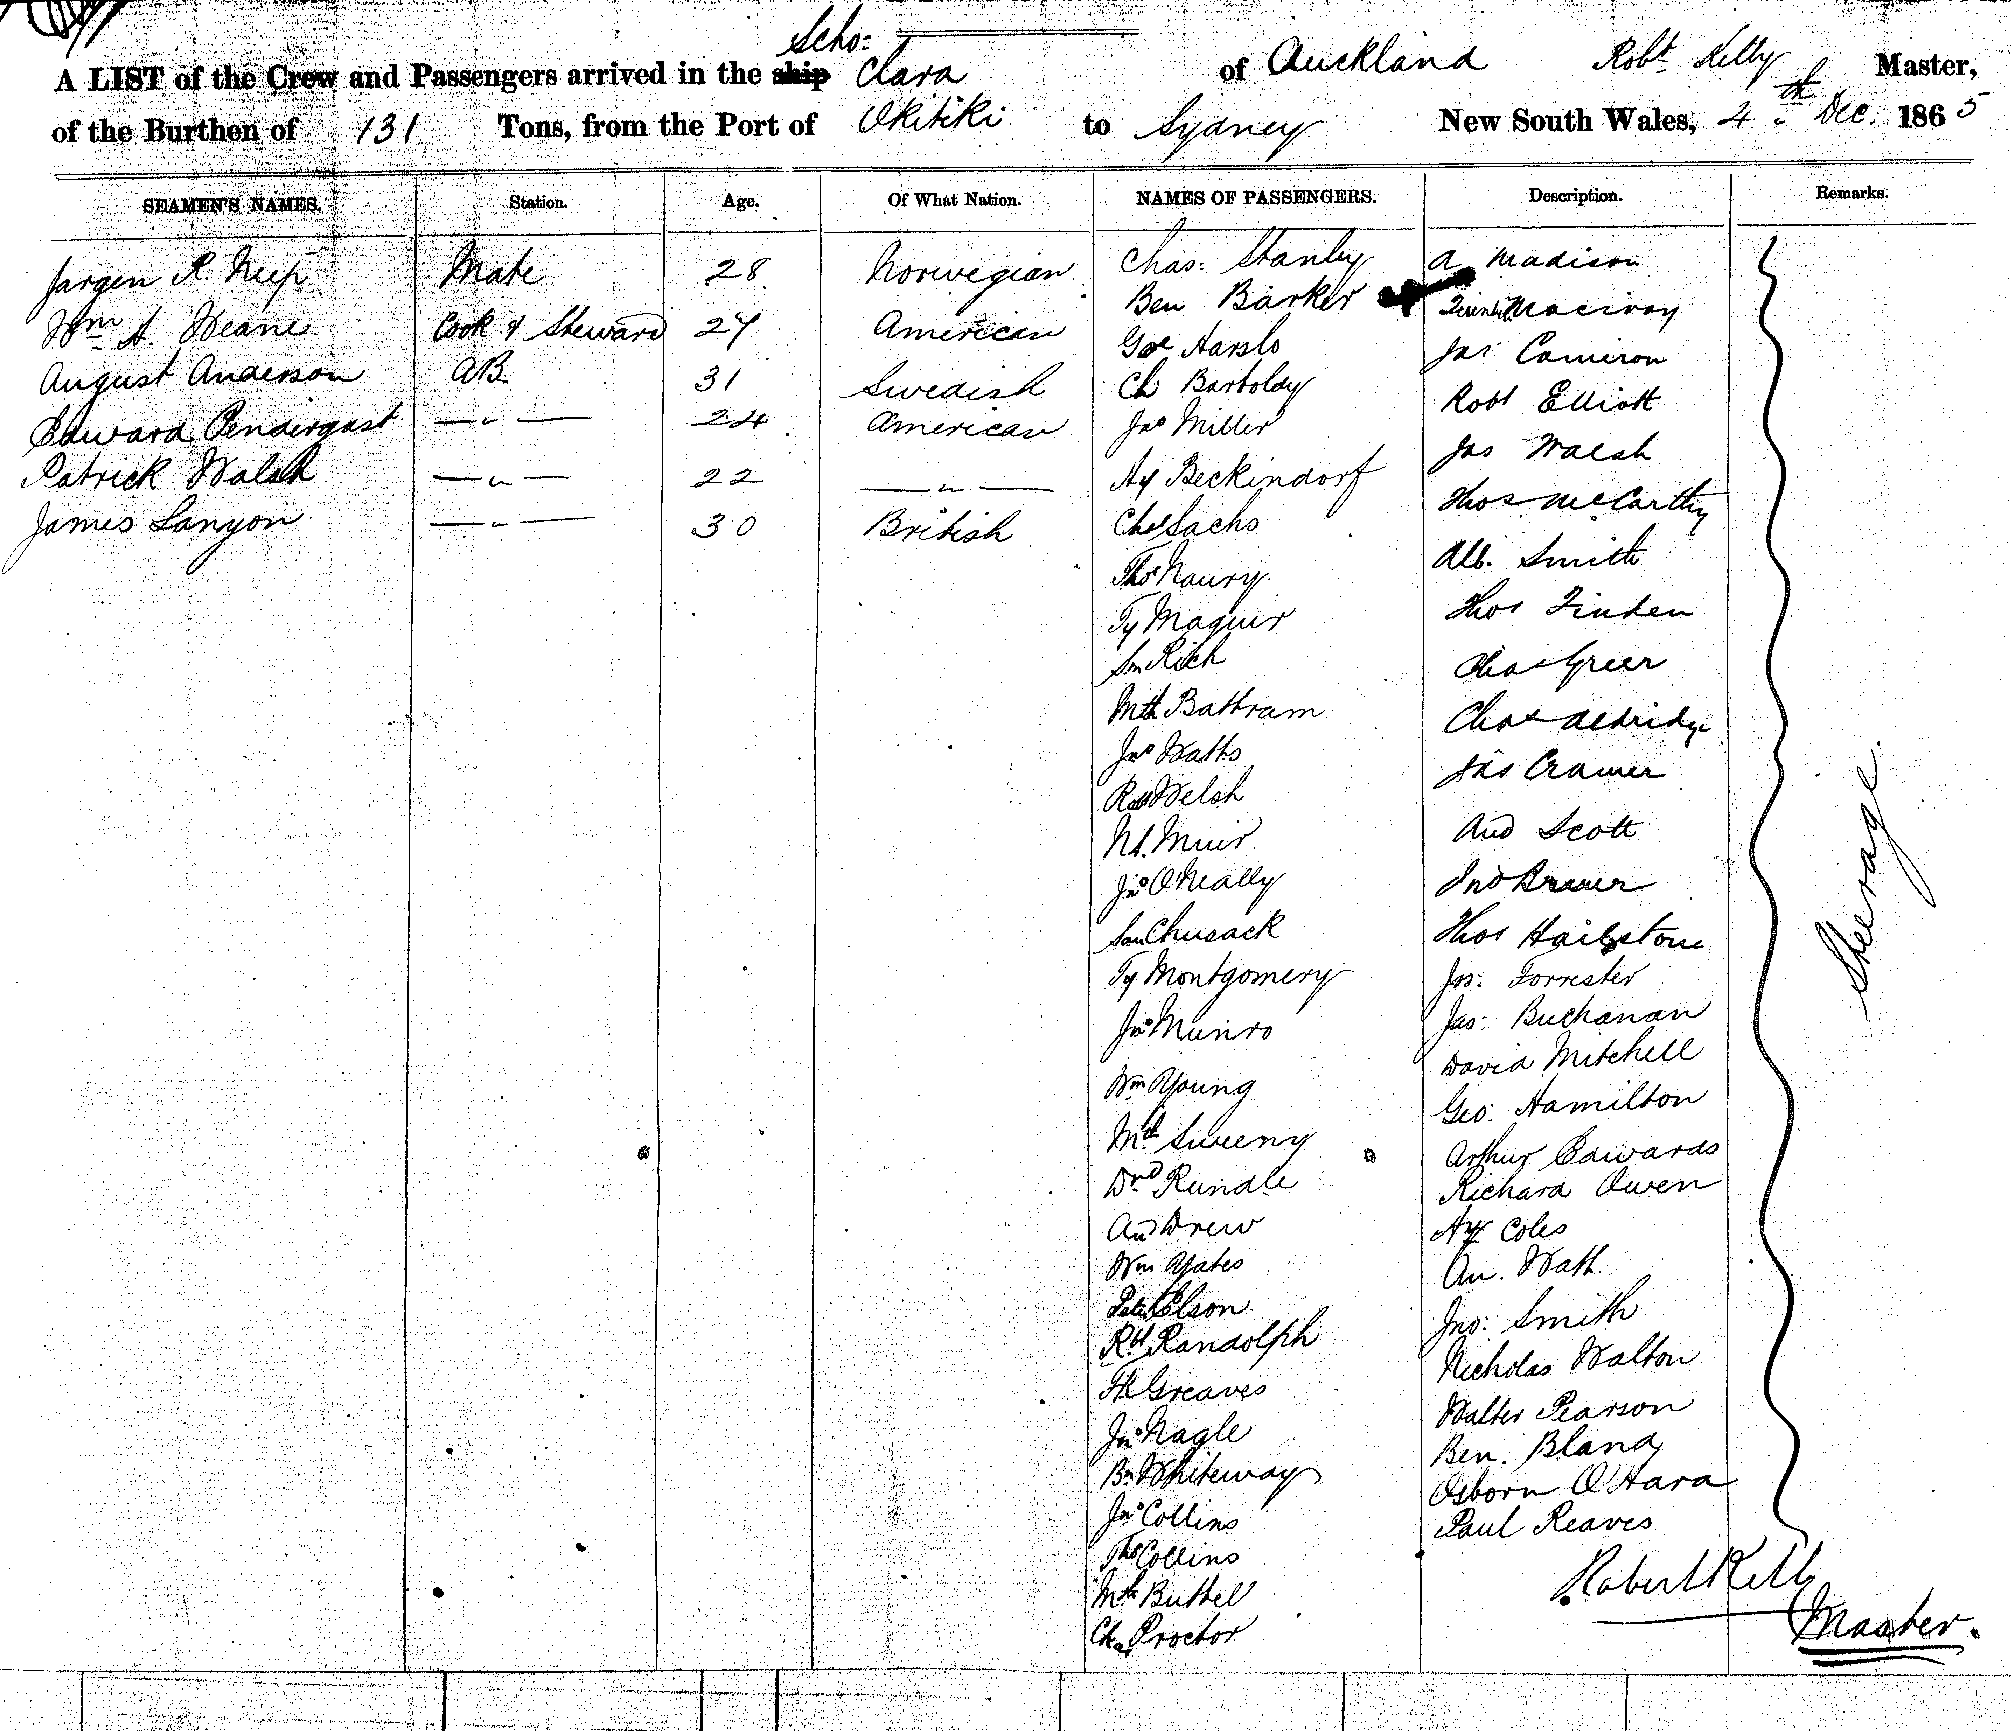 Scho:
A LIST of the Crew and Passengers arrived in the ship Clara of Auckland Robt Kelly Master,
of the Burthen of 131 Tons, from the Port of Okitiki to Sydney New South Wales, 4th Dec. 1865
SEAMEN'S NAMES. Station. Age. Of What Nation. NAMES OF PASSENGERS. Description. Remarks.
Jargen R Neep Mate 28 Norwegian Chas: Stanley A Madison
Wm A. Deane Cook & Steward 27 American Ben Barker Macivoy
August Anderson AB. 31 Swedish Geo Harslo Jas Cameron
Edward Pendirgast — " — 24 American Ch Bartoldy Robt Elliott
Patrick Walsh — " — 22 — " — Jno Miller Jas Walsh
James Lanyon — " — 30 British Hy Beckindorf Thos McCarthy
Chs Sachs Alb. Smith
Thos Naury Thos Finden
Ty Maguir Chas Greer
Sm Rich Chas Aldridge
Mth Battram Jas Cramer
Jno Watts And Scott
Robt Welsh Jno Brewer
Nl. Muir Thos Hailstone
Jno O'Neally Jos: Forrester
Sam Chusack Jas: Buchanan
Ty Montgomery David Mitchell
Jno Munro Geo: Hamilton
Wm Young Arthur Edwards
Ml Sweeny Richard Owen
Dnd Rundle Hy Coles
And Drew An. Watt.
Wm Yates Jno: Smith
Peter Olson Nicholas Walton
Rd Randolph Walter Pearson
Fk Greaves Ben. Bland
Jno Nagle Osborn O'Hara
Bn Whiteway Paul Reaves
Jno Collins
Thos Collins
Mth Buttel
Chs Proctor
Steerage.
Robert Kelly
Master.